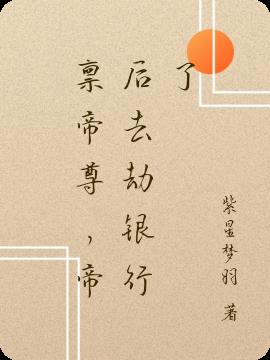 禀帝尊，帝
后去劫银行
了
紫星梦羽 著